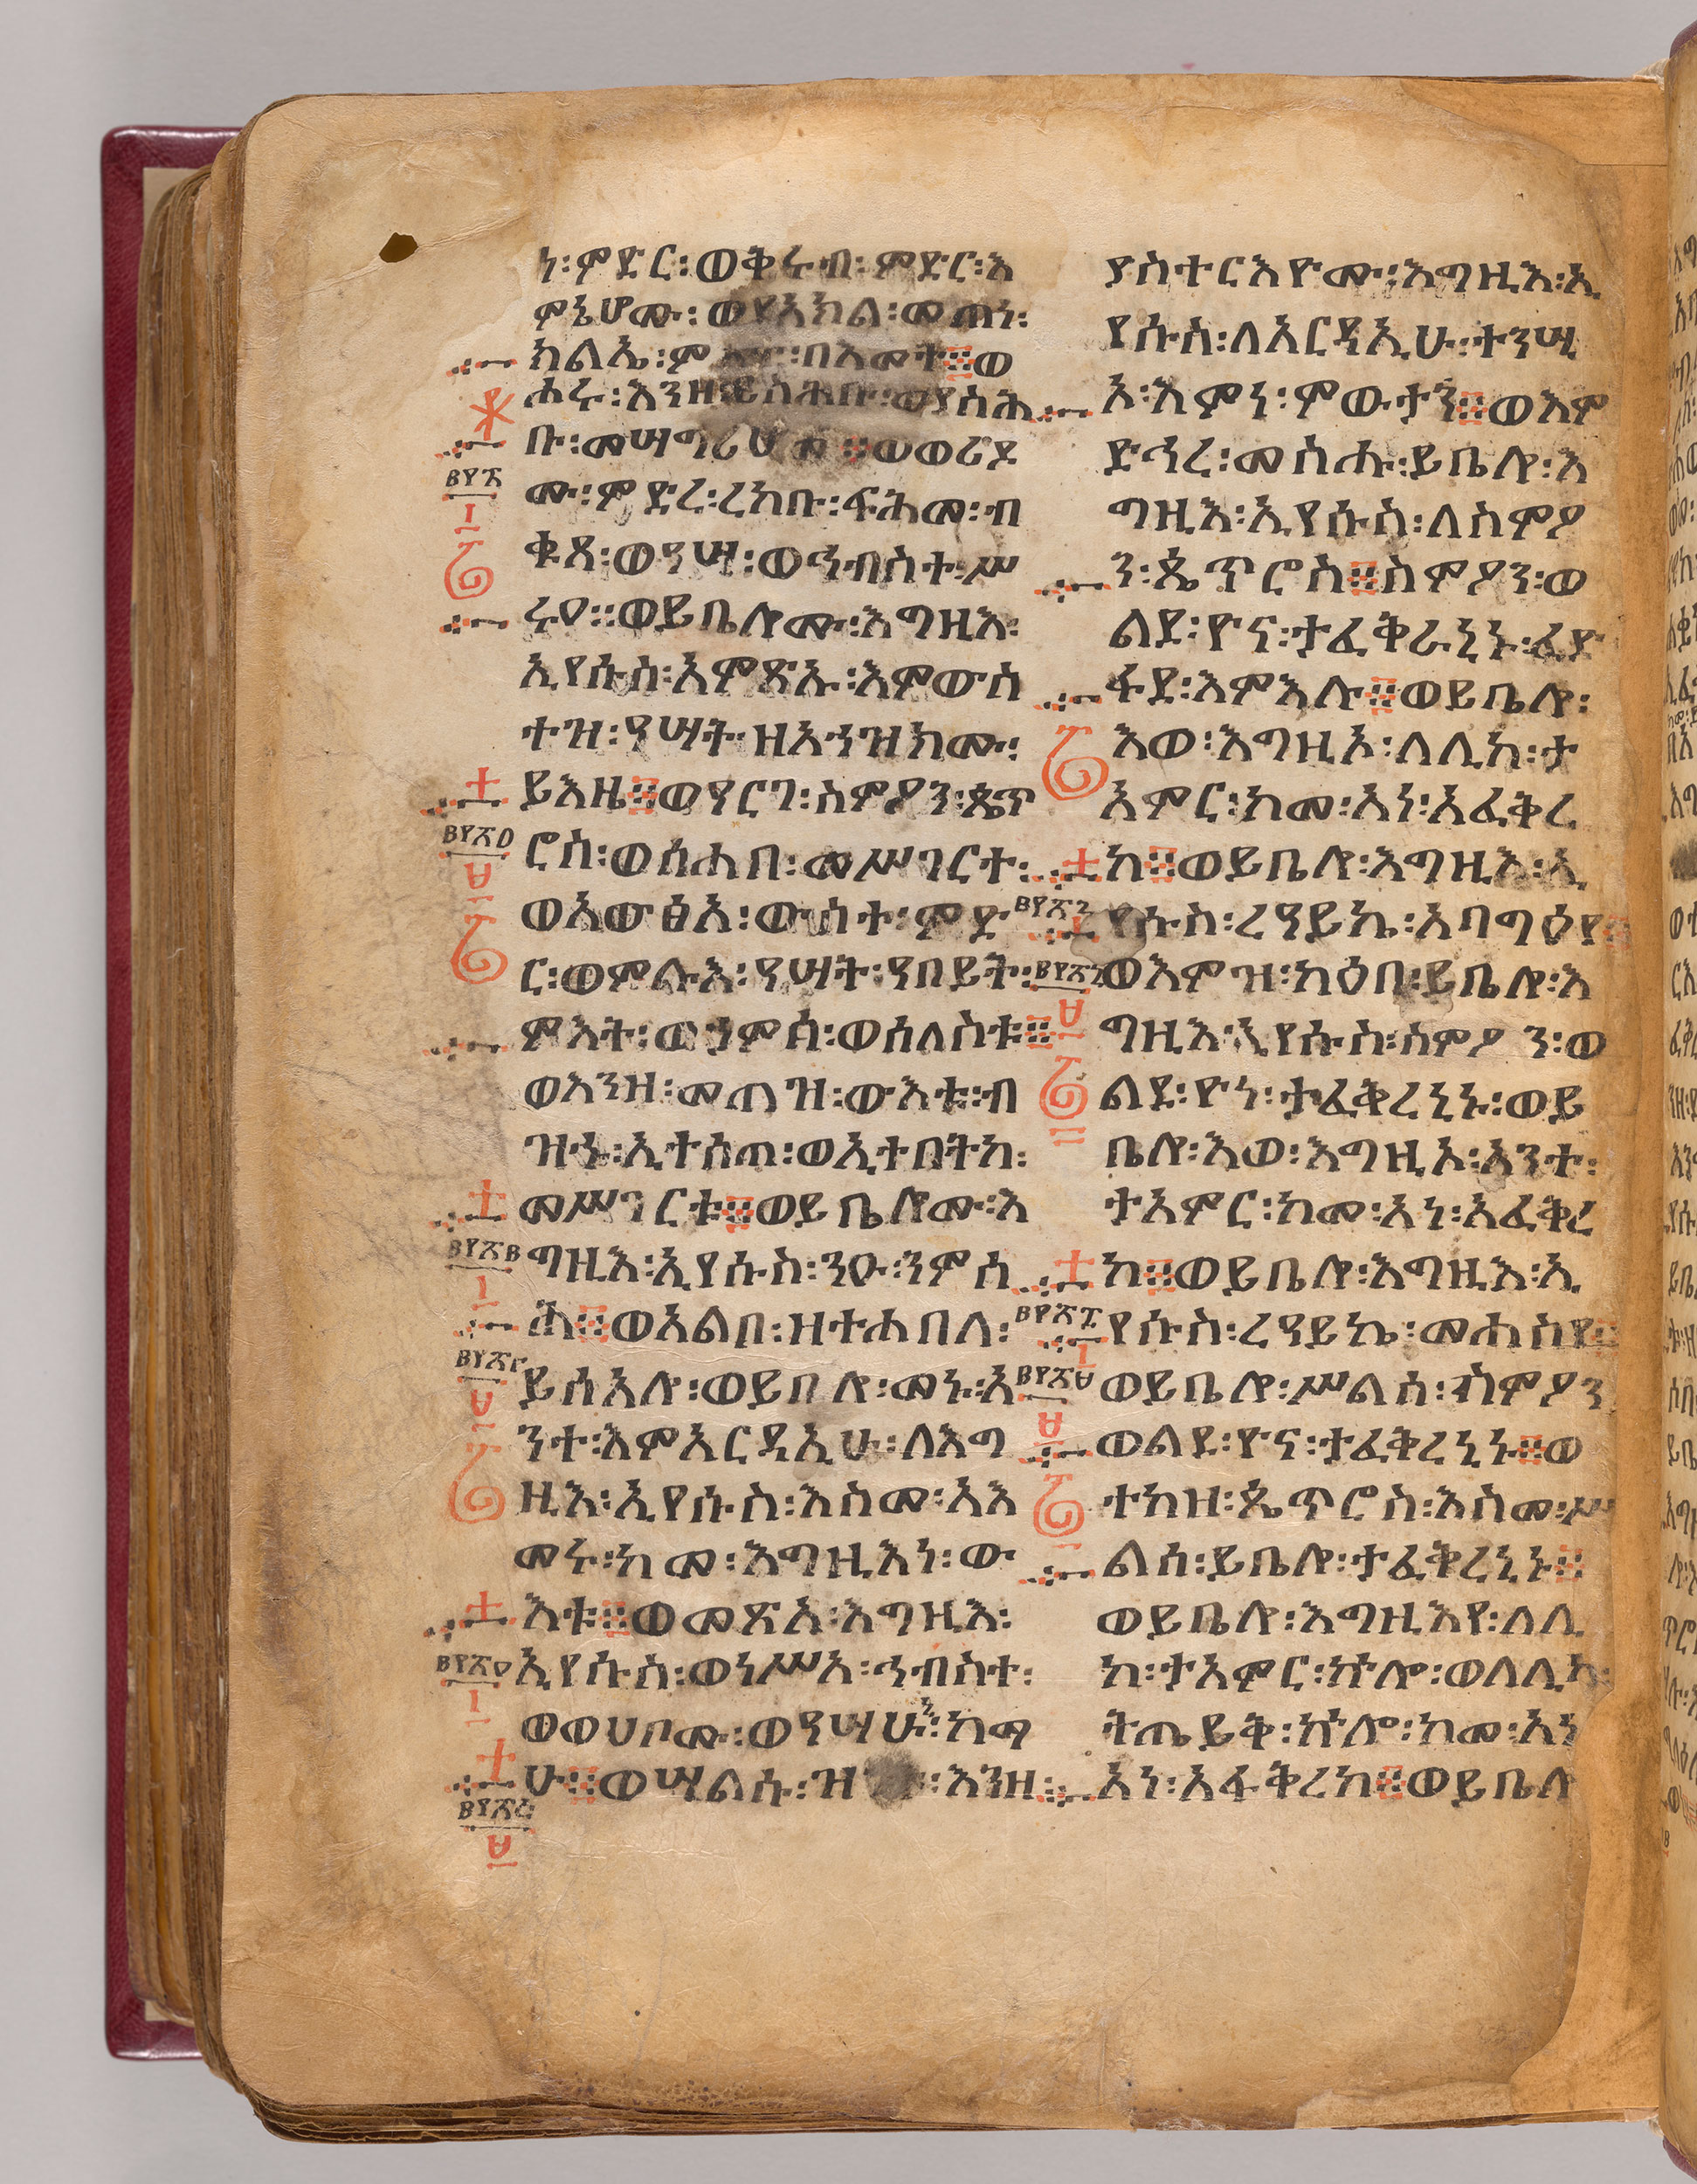 ነ፡ምድር፡ወቅሩብ፡ምድር፡እ
ምኔሆሙ፡ወየአክል፡መጠነ፡
ክልኤ፡ በእመት፨ወ
ሐሩ፡እንዘ፡ይስሕቡ፡ወየስሕ
ቡ፡ ወወሪዶ
ሙ፡ምድረ፡ረከቡ፡ፍሕመ፡ብ
ቁጸ፡ወዓሣ፡ወኅብስተ፡ሥ
ሩዐ፡፡ወይቤሎሙ፡እግዚእ፡
ኢየሱስ፡አምጽኡ፡እምውስ
ተዝ፡ዓሣት፡ዘአኀዝክሙ፡
ይእዜ፨ወዓርገ፡ስምዖን፡ጴጥ
ሮስ፡ወሰሐበ፡መሥገርተ፡
ወአውፅአ፡ውስተ፡ምድ
ር፡ወምሉእ፡ዓሣት፡ዓበይት፡
ምእት፡ወኃምሳ፡ወሰለስቱ፨
ወእንዘ፡መጠንዝ፡ውእቱ፡ብ
ዝኁ፡ኢተሰጠ፡ወኢተበትከ፡
መሥገርቱ፨ወይቤሎሙ፡እ
ግዚእ፡ኢየሱስ፡ንዑ፡ንምሳ
ሕ፨ወአልቦ፡ዘተሐበለ፡
ይሰአሎ፡ወይበሎ፡መኑ፡አ
ንተ፡እምአርዳኢሁ፡ለእግ
ዚእ፡ኢየሱስ፡እስመ፡አእ
መሩ፡ከመ፡እግዚእነ፡ው
እቱ፨ወመጽአ፡እግዚእ፡
ኢየሱስ፡ወነሥአ፡ኅብስተ፡
ወወሀቦሙ፡ወዓሣሁኒ፡ከማ
ሁ፨ወሣልሱ፡ እንዘ፡
ያስተርእዮሙ፡እግዚእ፡ኢ
የሱስ፡ለአርዳኢሁ፡ተንሢ
ኦ፡እምነ፡ምውታን፨ወእም
ድኅረ፡መስሑ፡ይቤሎ፡እ
ግዚእ፡ኢየሱስ፡ለስምዖ
ን፡ጴጥሮስ፨ስምዖን፡ወ
ልደ፡ዮና፡ታፈቅራኒኑ፡ፈድ
ፋደ፡እምእሉ፨ወይቤሎ፡
እወ፡እግዚኦ፡ለሊከ፡ታ
አምር፡ከመ፡አነ፡አፈቅረ
ከ፨ወይቤሎ፡እግዚእ፡ኢ
የሱስ፡ረዓይኬ፡አባግዕየ፨
ወእምዝ፡ካዕበ፡ይቤሎ፡እ
ግዚእ፡ኢየሱስ፡ስምዖን፡ወ
ልደ፡ዮና፡ታፈቅረኒኑ፡ወይ
ቤሎ፡እወ፡እግዚኦ፡አንተ፡
ታአምር፡ከመ፡አነ፡አፈቅረ
ከ፨ወይቤሎ፡እግዚእ፡ኢ
የሱስ፡ረዓይኬ፡መሐስየ፨
ወይቤሎ፡ሥልሰ፡ስምዖን
ወልደ፡ዮና፡ታፈቅረኒኑ፨ወ
ተከዘ፡ጴጥሮስ፡እስመ፡ሥ
ልሰ፡ይቤሎ፡ታፈቅረኒኑ፨
ወይቤሎ፡እግዚእየ፡ለሊ
ከ፡ታአምር፡ኵሎ፡ወለሊከ፡
ትጤይቅ፡ኵሎ፡ከመ፡አነ
አነ፡አፋቅረከ፨ወይቤሎ